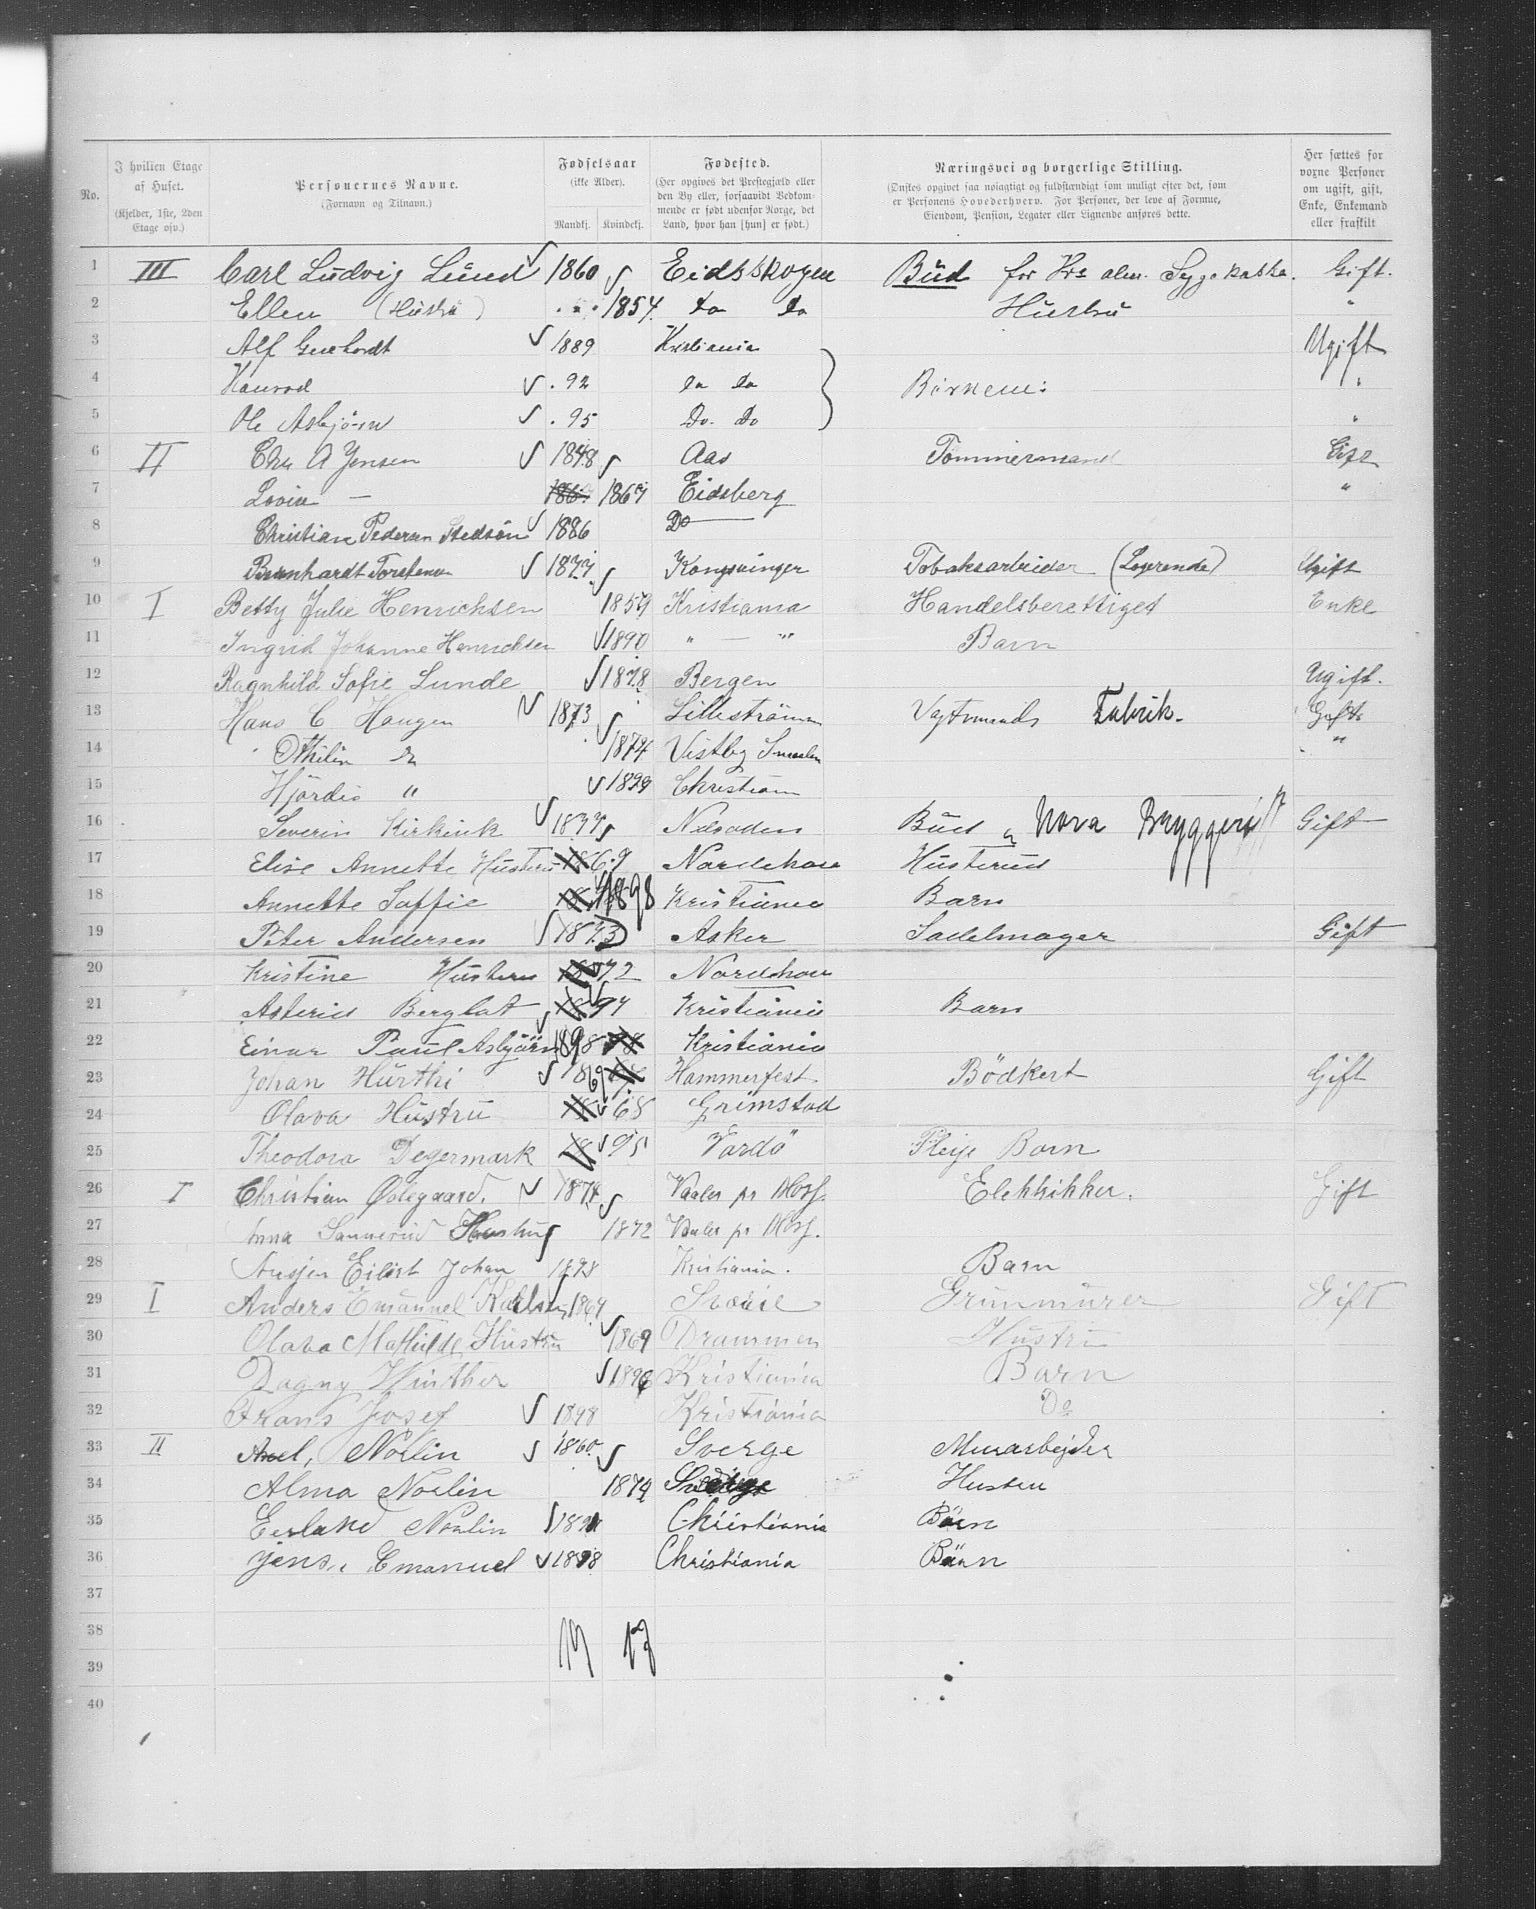 No.
I hvilken Etage af Huset. (Kjelder, 1ste, 2den Etage osv.)
Personernes Navne. (Fornavn og Tilnavn.)
Fødselsaar (ikke Alder). Mandkj. Kvindekj.
Fødested. (Her opgives det Prestegjæld eller den By eller, forsaavidt Vedkommende er født udenfor Norge, det Land, hvor han [hun] er født.)
Næringsvei og borgerlige Stilling. (Ønskes opgivet saa nøiagtigt og fuldstændigt som muligt efter det, som er Personens Hovederhverv. For Personer, der leve af Formue, Eiendom, Pension, Legater eller Lignende anføres dette.)
Her sættes for voxne Personer om ugift, gift, Enke, Enkemand eller fraskilt
1 III Carl Ludvig Lund 1860 Eidsskogen Bud for Krs alm. Sygekasse. Gift.
2 Ellen (Hustru) 1854 Do Do Hustru "
3 Alf Gerhardt 1889 Kristiania Ugift
4 Konrad . 92 Do Do Börnene: "
5 Ole Asbjörn . 95 Do. Do "
6 II Chr A Jensen 1848 Aas Tømmermand Gift
7 Lovise — 1867 Eidsberg "
8 Christian Pedersen Stedsön 1886 Do
9 Bernhardt Torstensen 1877 Kongsvinger Tobaksarbeider (Logerende) Ugift
10 I Betty Julie Henrichsen 1857 Kristiania Handelsberettiget Enke
11 Ingrid Johanne Henrichsen 1890 " — " Barn
12 Ragnhild Sofie Lunde 1878 Bergen Ugift.
13 Hans C Haugen 1873 Lilleströmmen Vagtmand Fabrik. Gift
14 Othilie 1874 Vestby Smaalen "
15 Hjördis " 1899 Christiania
16 Severin Kirkvik 1837 Nesodden Bud Nora Bryggeri Gift
17 Elise Annette Hustru 69 Nordehov Husteru
18 Annette Soffie 1898 Kristiania Barn
19 Peter Andersen 1873 Asker Sadelmager Gift
20 Kristine Husteru 72 Nordehov
21 Asterid Berglot 97 Kristiania Barn
22 Einar Paul Asbjörn 1898 Kristiania
23 Johan Hurthi 1869 Hammerfest. Bödkert Gift
24 Olava Hustru 68 Grimstad
25 Theodora Degermark 95 Vardö Pleije Barn
26 I Christian Østegaard. 1874 Vaaler pr Moss. Elektriker. Gift
27 Anna Sannerud Hustru 1872 Vaaler pr Moss.
28 Eilert Johan 1898 Kristiania. Barn
29 I Anders Emanuel Karlsen 1864 Sverie Grunmurer Gift
30 Olava Mathilde Hustru 1869 Drammen Hustru
31 Dagny Winther 1896 Kristiania Barn
32 Frans Josef 1898 Kristiania Do
33 II Axel, Norlin 1860 Sverge Murarbejder
34 Alma Norlin 1874 Sverge Hustru
35 Erland Norlin Christiania Barn
36 Jens. Emanuel 1898 Christiania Barn
37
38 19 17
39
40